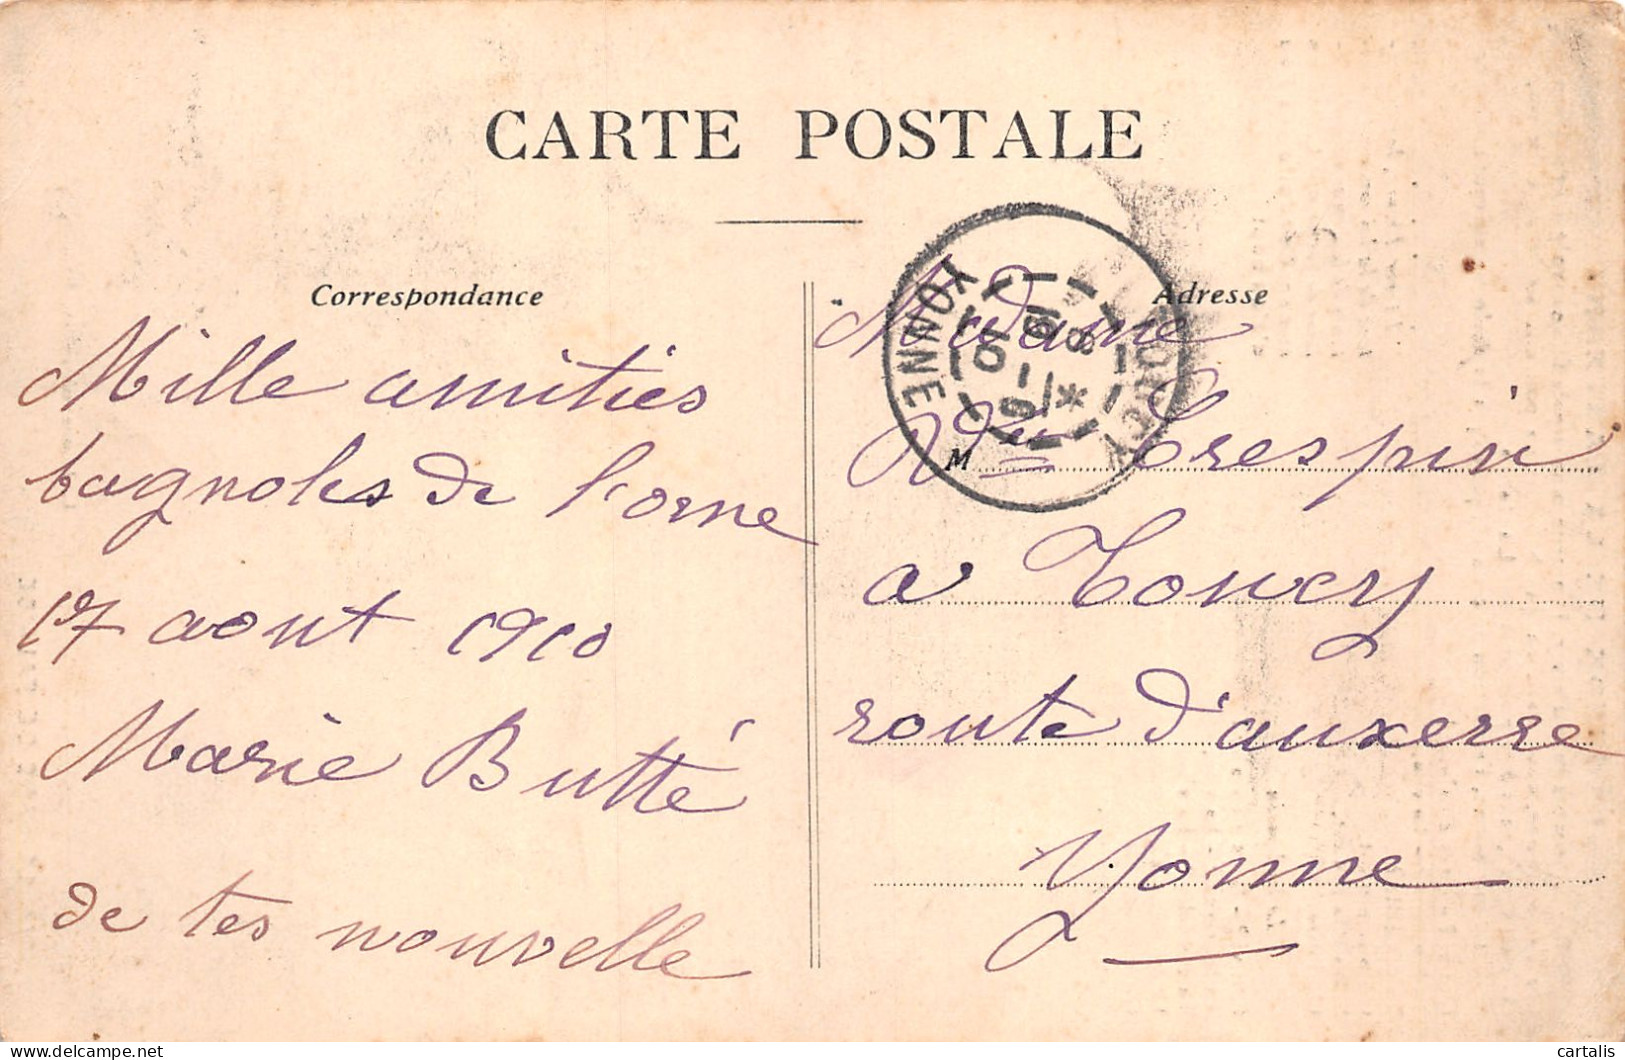 CARTE POSTALE
Correspondance
Mille amitiés
bagnoles de l'orne
17 aout 1910
Marie Butté
de tes nouvelle
Adresse
Madame
M Vve Crespin
a Toucy
route d'auxerre
Yonne
TOUCY
YONNE
delcampe.net
cartalis